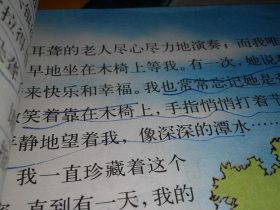 耳聋的老人尽心尽力地演奏;而我唯
早地坐在木椅上等我。有一次,她说
来快乐和幸福。我也常常忘记她是
笑着靠在木椅上,手指悄悄打着节
静地望着我,像深深的潭水……
我一直珍藏着这个
直到有一天,我的